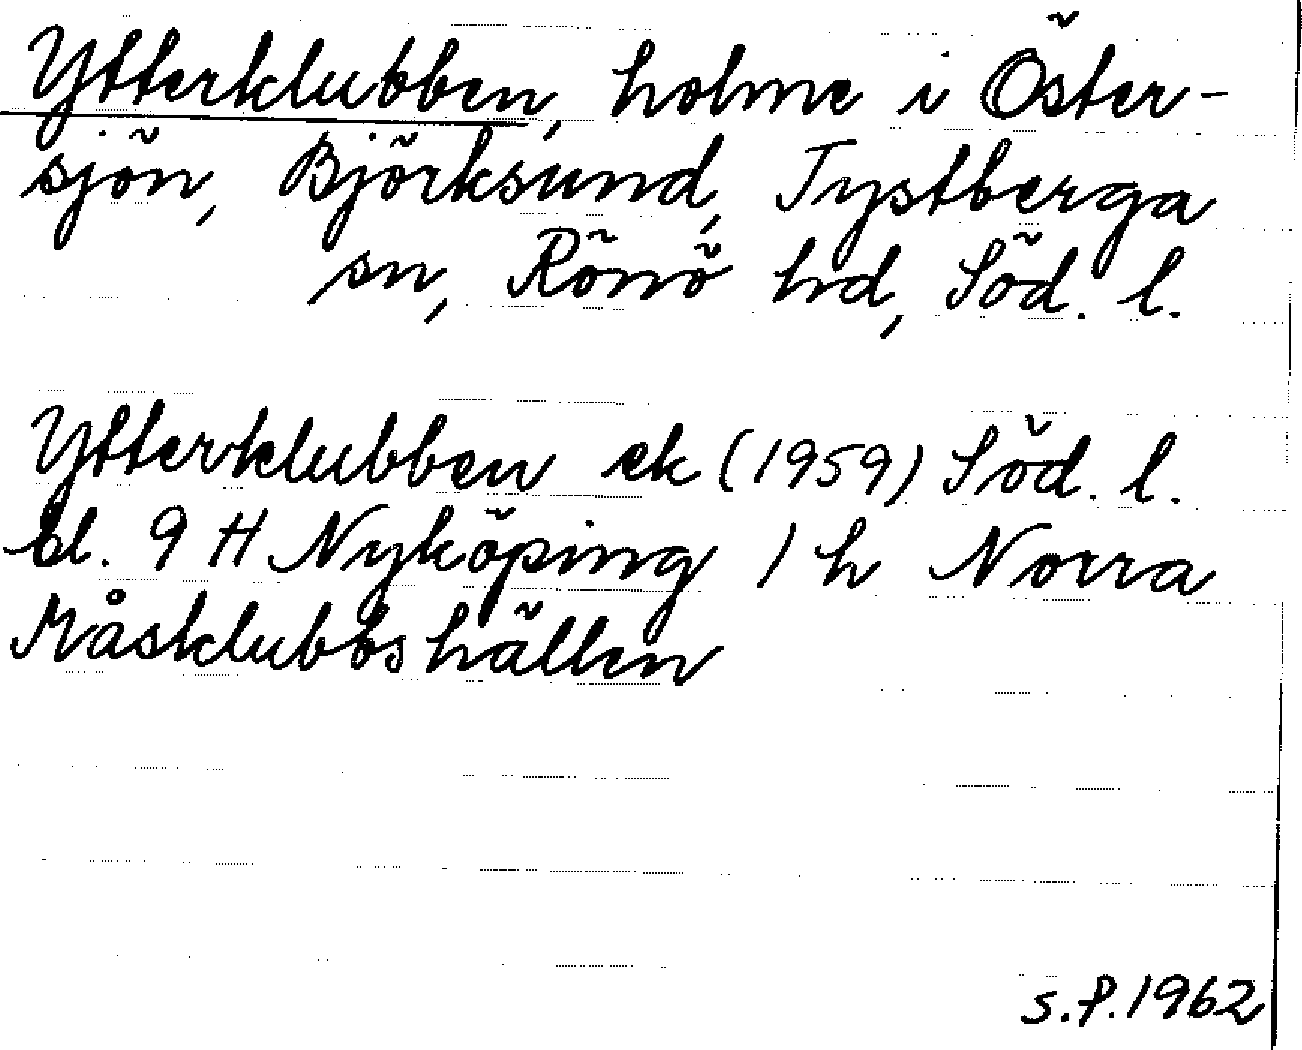 Ytterklubben, holme i Öster-
sjön, Björksund, Tystberga
sn, Rönö hd, Söd. l.
Ytterklubben ek (1959) Söd. l.
bl. 9 H Nyköping 1 h Norra
Måsklubbshällen
S.P. 1962